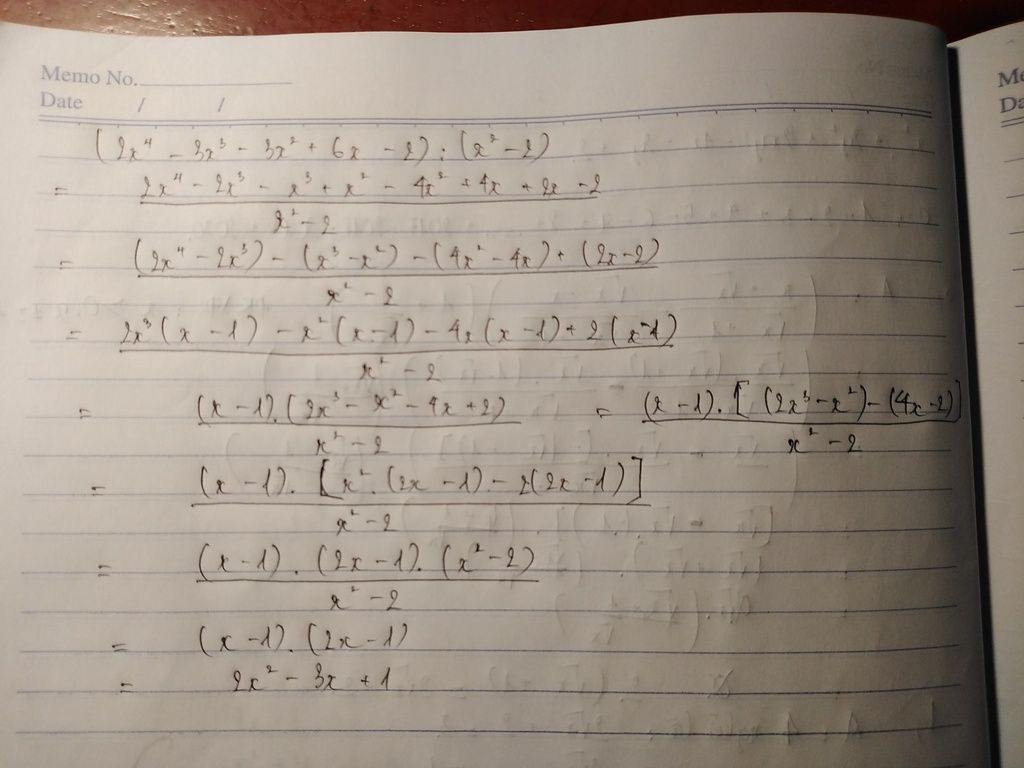 Memo No.
Date / /
(2x⁴ - 3x³ - 3x² + 6x - 2) : (x² - 2)
= (2x⁴ - 2x³ - x³ + x² - 4x² + 4x + 2x - 2) / (x² - 2)
= ((2x⁴ - 2x³) - (x³ - x²) - (4x² - 4x) + (2x - 2)) / (x² - 2)
= (2x³(x - 1) - x²(x - 1) - 4x(x - 1) + 2(x - 1)) / (x² - 2)
= ((x - 1).(2x³ - x² - 4x + 2)) / (x² - 2) = ((x - 1).[(2x³ - x²) - (4x - 2)]) / (x² - 2)
= ((x - 1).[x².(2x - 1) - 2(2x - 1)]) / (x² - 2)
= ((x - 1).(2x - 1).(x² - 2)) / (x² - 2)
= (x - 1).(2x - 1)
= 2x² - 3x + 1